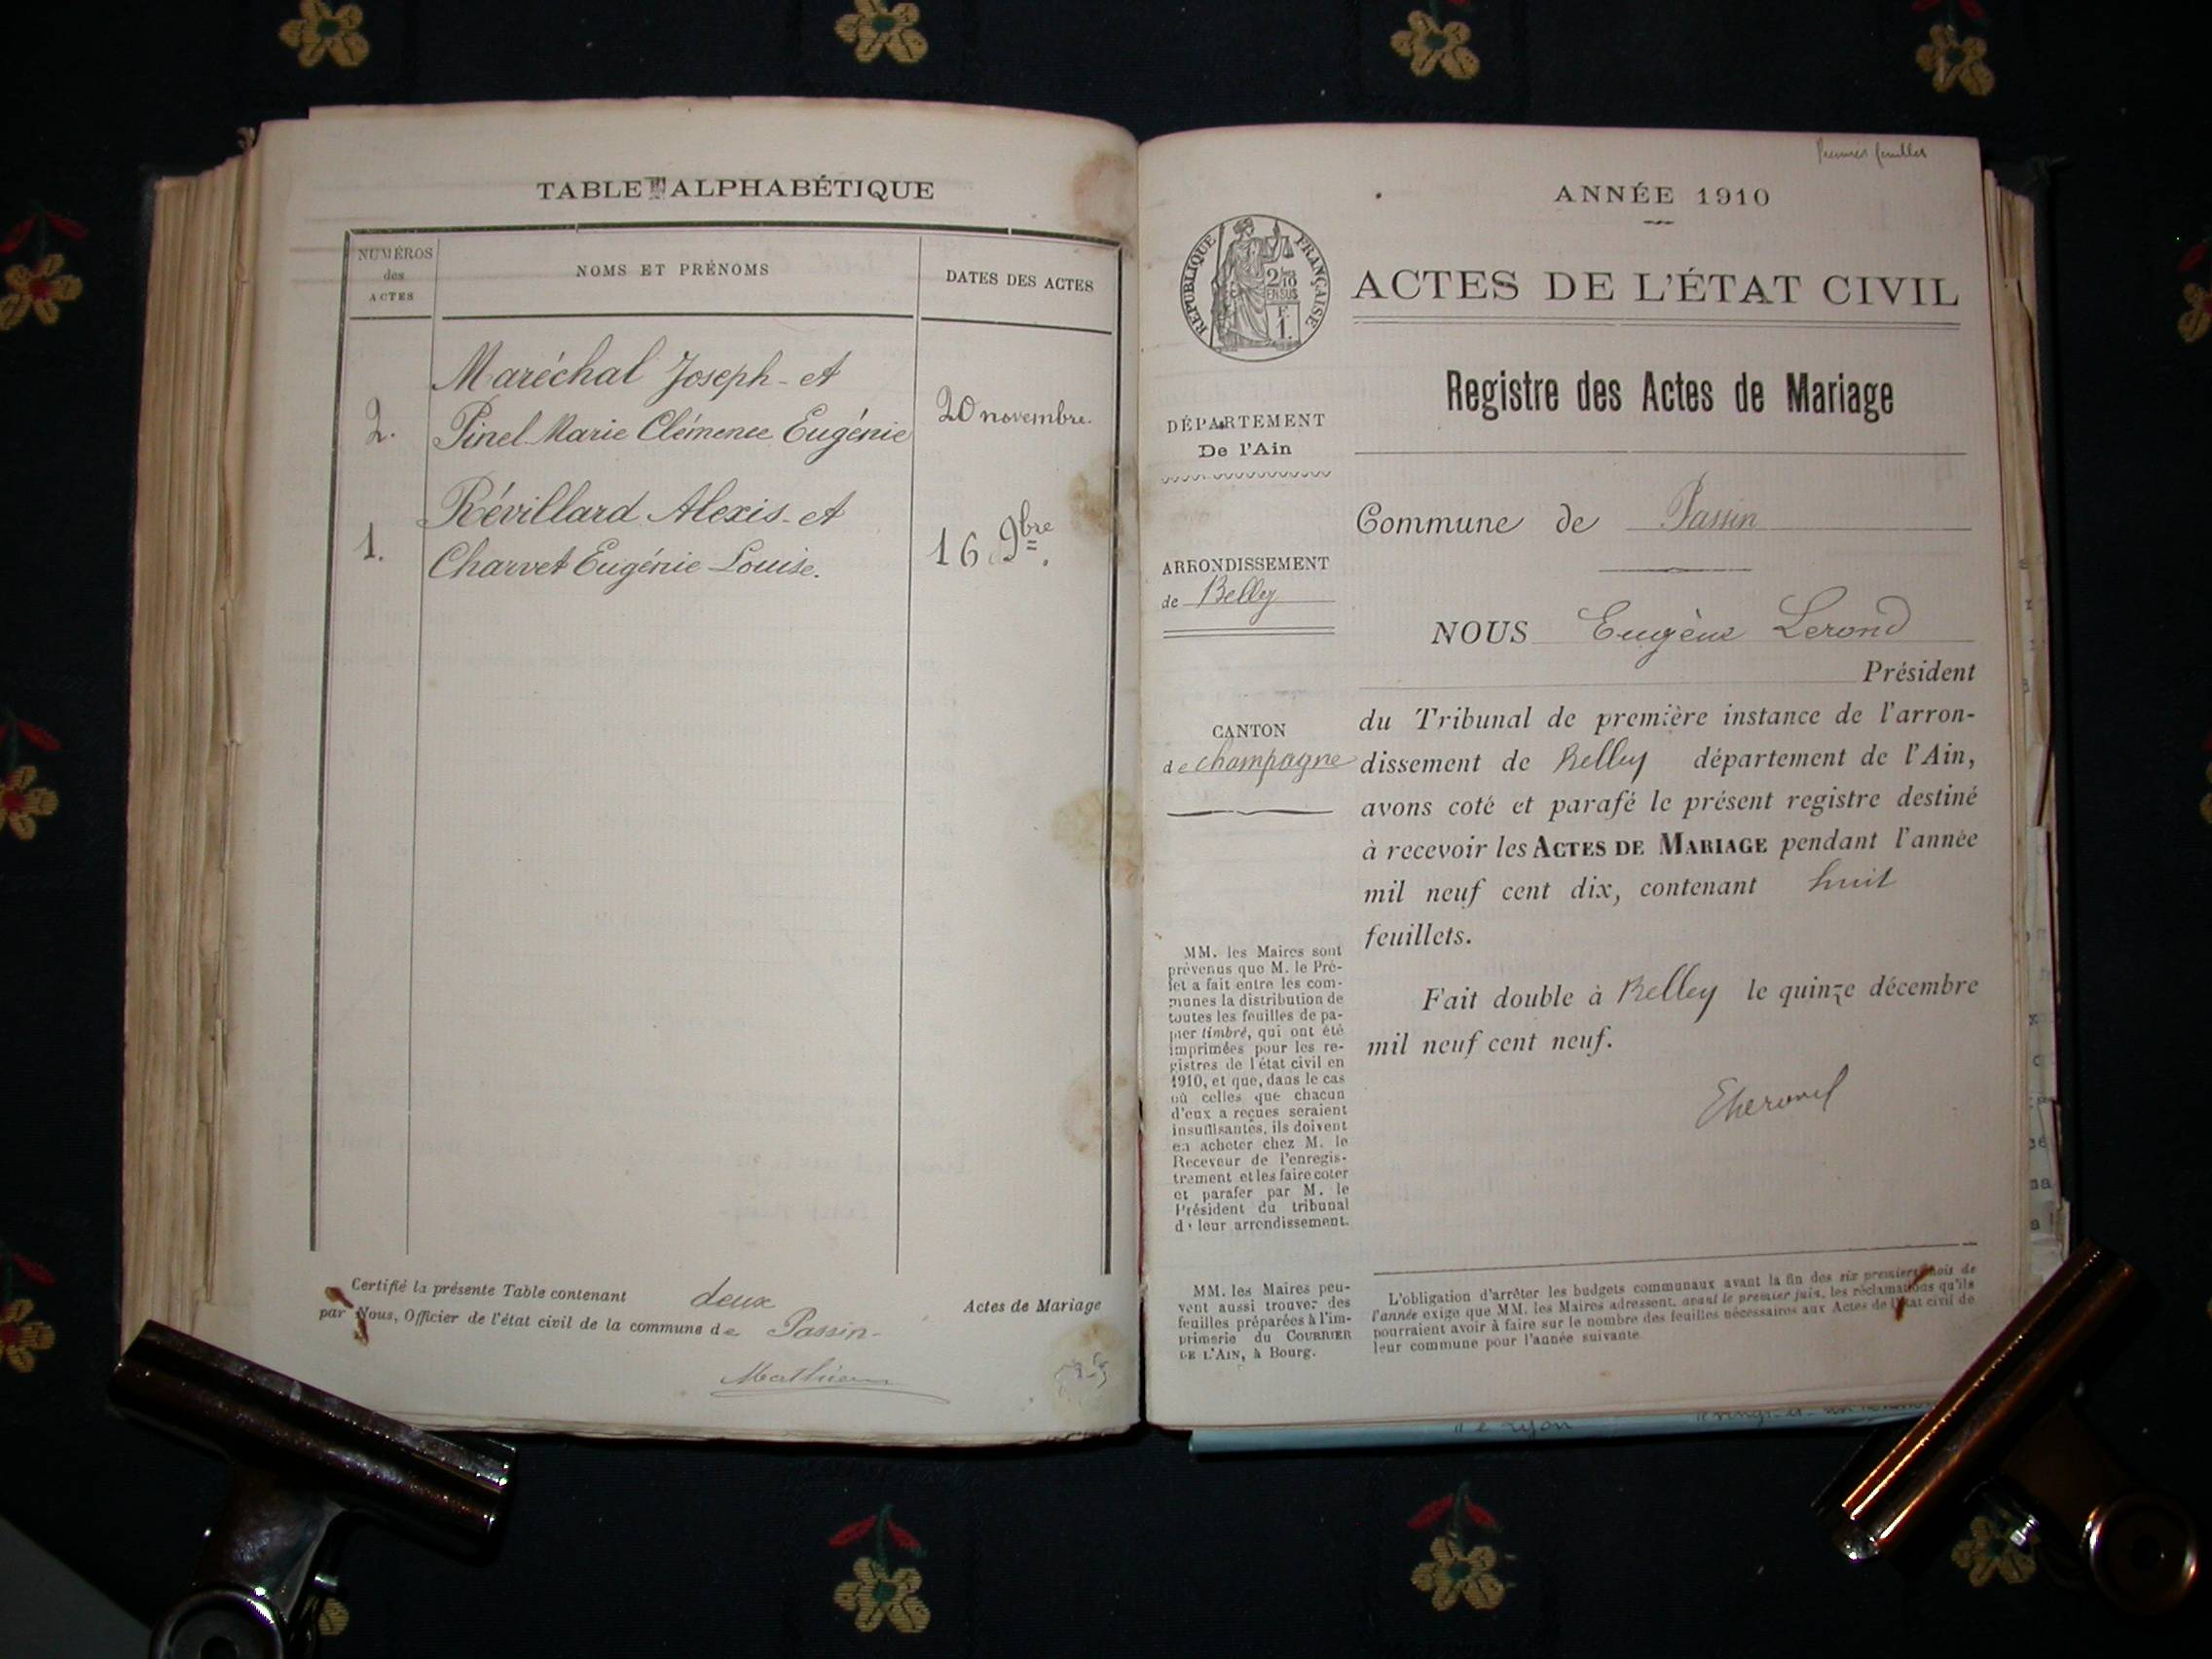 TABLE ALPHABÉTIQUE
NUMÉROS
des
ACTES
NOMS ET PRÉNOMS
DATES DES ACTES
Maréchal Joseph - et
2.
Pinel Marie Clémence Eugénie
20 novembre.
Révillard Alexis - et
1.
Charvet Eugénie Louise.
16 9bre.
Certifié la présente Table contenant deux Actes de Mariage
par Nous, Officier de l'état civil de la commune de Passin -
Mathieu
Premier feuillet
ANNÉE 1910
RÉPUBLIQUE FRANÇAISE
2/10
EN SUS
F.
1.
ACTES DE L'ÉTAT CIVIL
Registre des Actes de Mariage
DÉPARTEMENT
De l'Ain
Commune de Passin
ARRONDISSEMENT
de Belley
NOUS Eugène Lerond
Président
CANTON
de Champagne
du Tribunal de première instance de l'arron-
dissement de Belley département de l'Ain,
avons coté et parafé le présent registre destiné
à recevoir les ACTES DE MARIAGE pendant l'année
mil neuf cent dix, contenant huit
feuillets.
Fait double à Belley le quinze décembre
mil neuf cent neuf.
MM. les Maires sont
prévenus que M. le Pré-
fet a fait entre les com-
munes la distribution de
toutes les feuilles de pa-
pier timbré, qui ont été
imprimées pour les re-
gistres de l'état civil en
1910, et que, dans le cas
où celles que chacun
d'eux a reçues seraient
insuffisantes, ils doivent
en acheter chez M. le
Receveur de l'enregis-
trement et les faire coter
et parafer par M. le
Président du tribunal
de leur arrondissement.
MM. les Maires peu-
vent aussi trouver des
feuilles préparées à l'im-
primerie du COURRIER
DE L'AIN, à Bourg.
L'obligation d'arrêter les budgets communaux avant la fin des six premiers mois de
l'année exige que MM. les Maires adressent, avant le premier juin, les réclamations qu'ils
pourraient avoir à faire sur le nombre des feuilles nécessaires aux Actes de l'état civil de
leur commune pour l'année suivante.
de Lyon